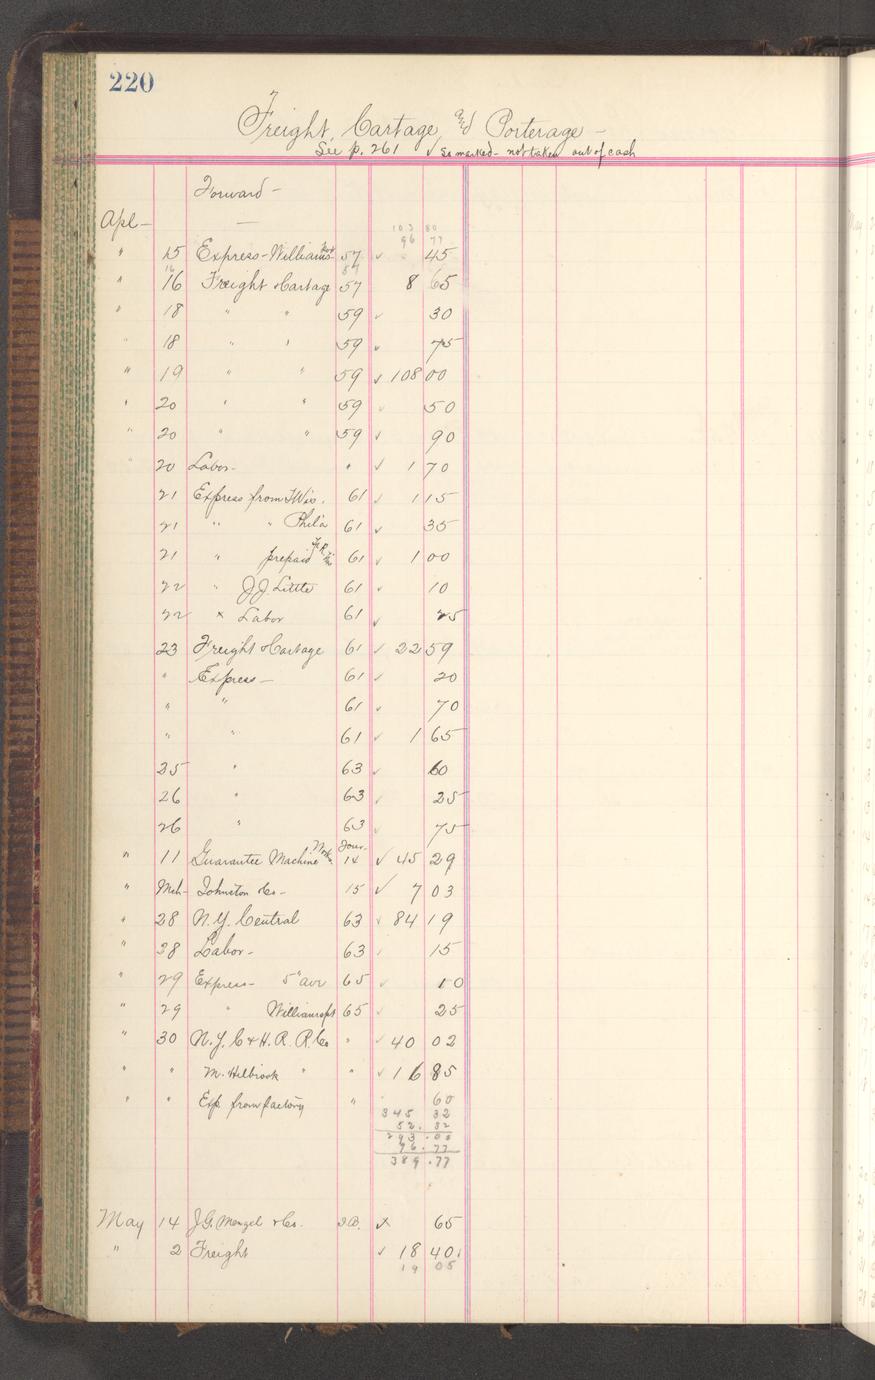 220
Freight, Cartage, and Porterage —
See p. 261 ✓ so marked - not taken out of cash
Forward —
Apl — —
103 80
96 77
" 15 Express - Williamsport 57 ✓ 45
16 57
" 16 Freight & Cartage 57 8 65
" 18 " " 59 ✓ 30
" 18 " " 59 ✓ 75
" 19 " " 59 ✓ 108 00
" 20 " " 59 ✓ 50
" 20 " " 59 ✓ 90
" 20 Labor - " ✓ 1 70
21 Express from 61 ✓ 1 15
21 " " Phil'a 61 ✓ 35
21 " prepaid 61 ✓ 1 00
22 " J.J. Little 61 ✓ 10
22 × Labor 61 ✓ 25
23 Freight & Cartage 61 ✓ 22 59
" Express — 61 ✓ 20
" " 61 ✓ 70
" " 61 ✓ 1 65
25 " 63 ✓ 60
26 " 63 ✓ 25
26 " 63 ✓ 75
" 11 Guarantee Machine Works Jour. 14 ✓ 45 29
" Mch - Johnston & Co - 15 ✓ 7 03
" 28 N.Y. Central 63 ✓ 84 19
" 28 Labor - 63 ✓ 15
" 29 Express - 5" ave 65 ✓ 10
" 29 " Williamspt 65 ✓ 25
" 30 N.Y. C & H. R. R. Co " ✓ 40 02
" " M. Holbrook " " ✓ 16 85
" " Exp. from factory " 60
345 32
52. 32
293 . 00
96 . 77
389 . 77
May 14 J.G. Menzel & Co. I.B. × 65
" 2 Freight ✓ 18 40
19 05